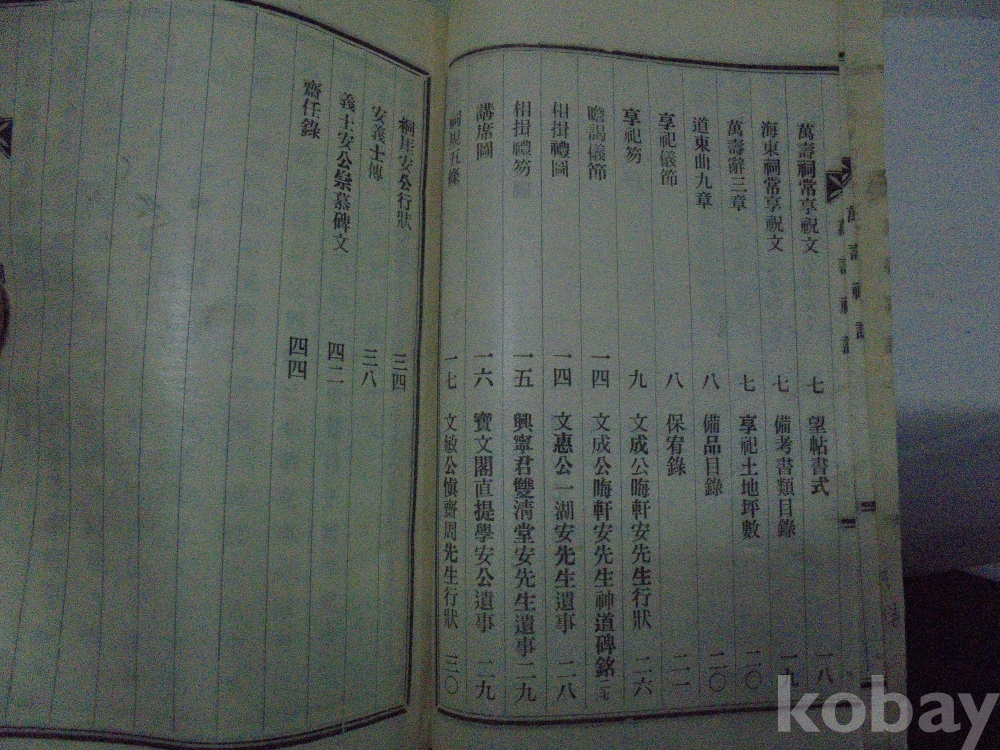 萬壽祠常享祝文 七
海東祠常享祝文 七
萬壽辭三章 七
道東曲九章 八
享祀儀節 八
享祀笏 九
瞻謁儀節 一四
相揖禮圖 一四
相揖禮笏 一五
講席圖 一六
祠規五條 一七
望帖書式 一八
備考書類目錄 一九
享祀土地坪數 二〇
備品目錄 二〇
保宥錄 二一
文成公晦軒安先生行狀 二六
文成公晦軒安先生神道碑銘 二七
文惠公一湖安先生遺事 二八
興寧君雙清堂安先生遺事 二九
寶文閣直提學安公遺事 二九
文敏公愼齋周先生行狀 三〇
安公行狀 三四
安義士傳 三八
義士安公崇慕碑文 四二
齋任錄 四四
萬壽祠誌
kobay